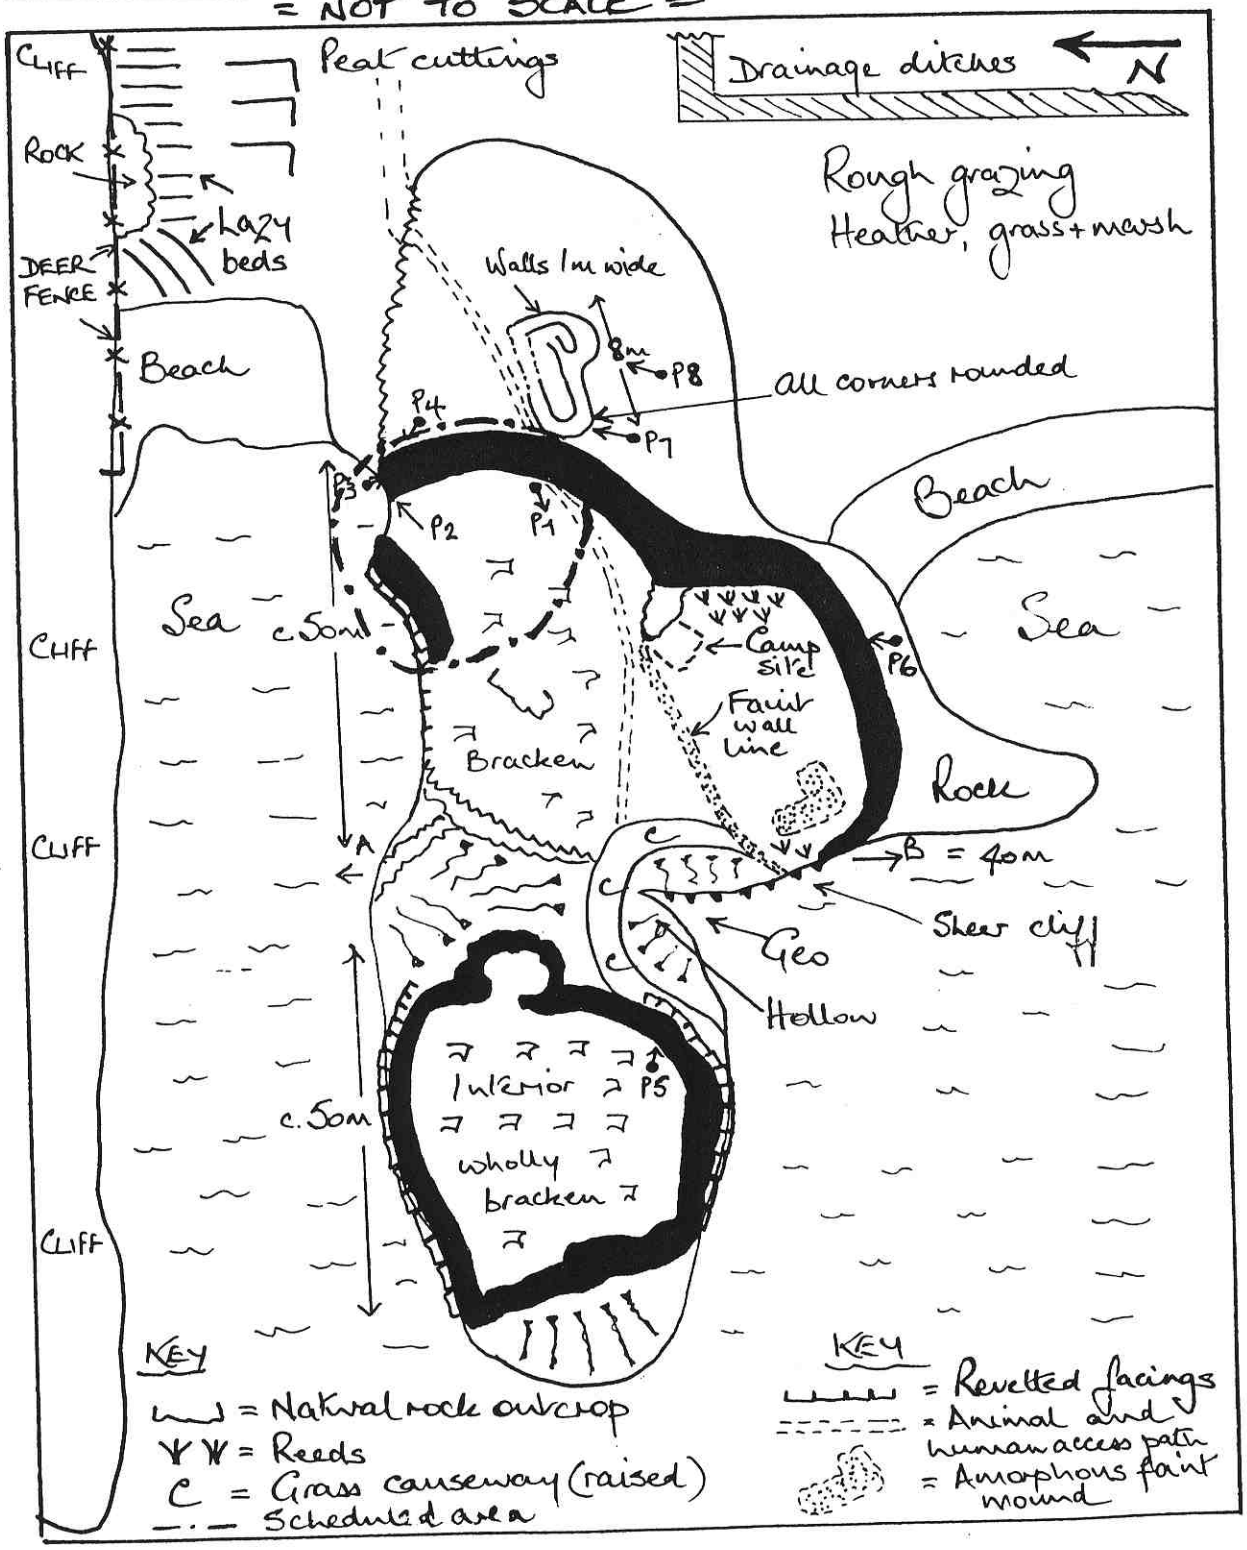 = NOT TO SCALE =
CLIFF
Peat cuttings
Drainage ditches
N
ROCK
Rough grazing
Heather, grass + marsh
Lazy
beds
DEER
FENCE
Walls 1m wide
8m
P8
Beach
All corners rounded
P4
P7
P3
P2
P1
Beach
Sea
c.50m
Sea
CLIFF
Camp
site
P6
Faint
wall
line
Bracken
Rock
C
CLIFF
A
B = 40m
C
Sheer cliff
Geo
C
Hollow
Interior
P5
c.50m
wholly
bracken
CLIFF
KEY
= Natural rock outcrop
= Reeds
C = Grass causeway (raised)
= Scheduled area
KEY
= Revetted facings
= Animal and
human access path
= Amorphous faint
mound